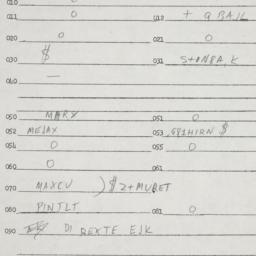 010 O
011 O 012 + 9 BAJL
020 O 021 O
030 $ 031 S+ON8A, K
040 —
050 MARX 051 O
052 MELAX 053 ,681HIRN $
054 O 055 O
060 O 061
070 MAXCU ) $ 2+MUBET
080 PINTLT 081 O
090 DI REXTE EJK